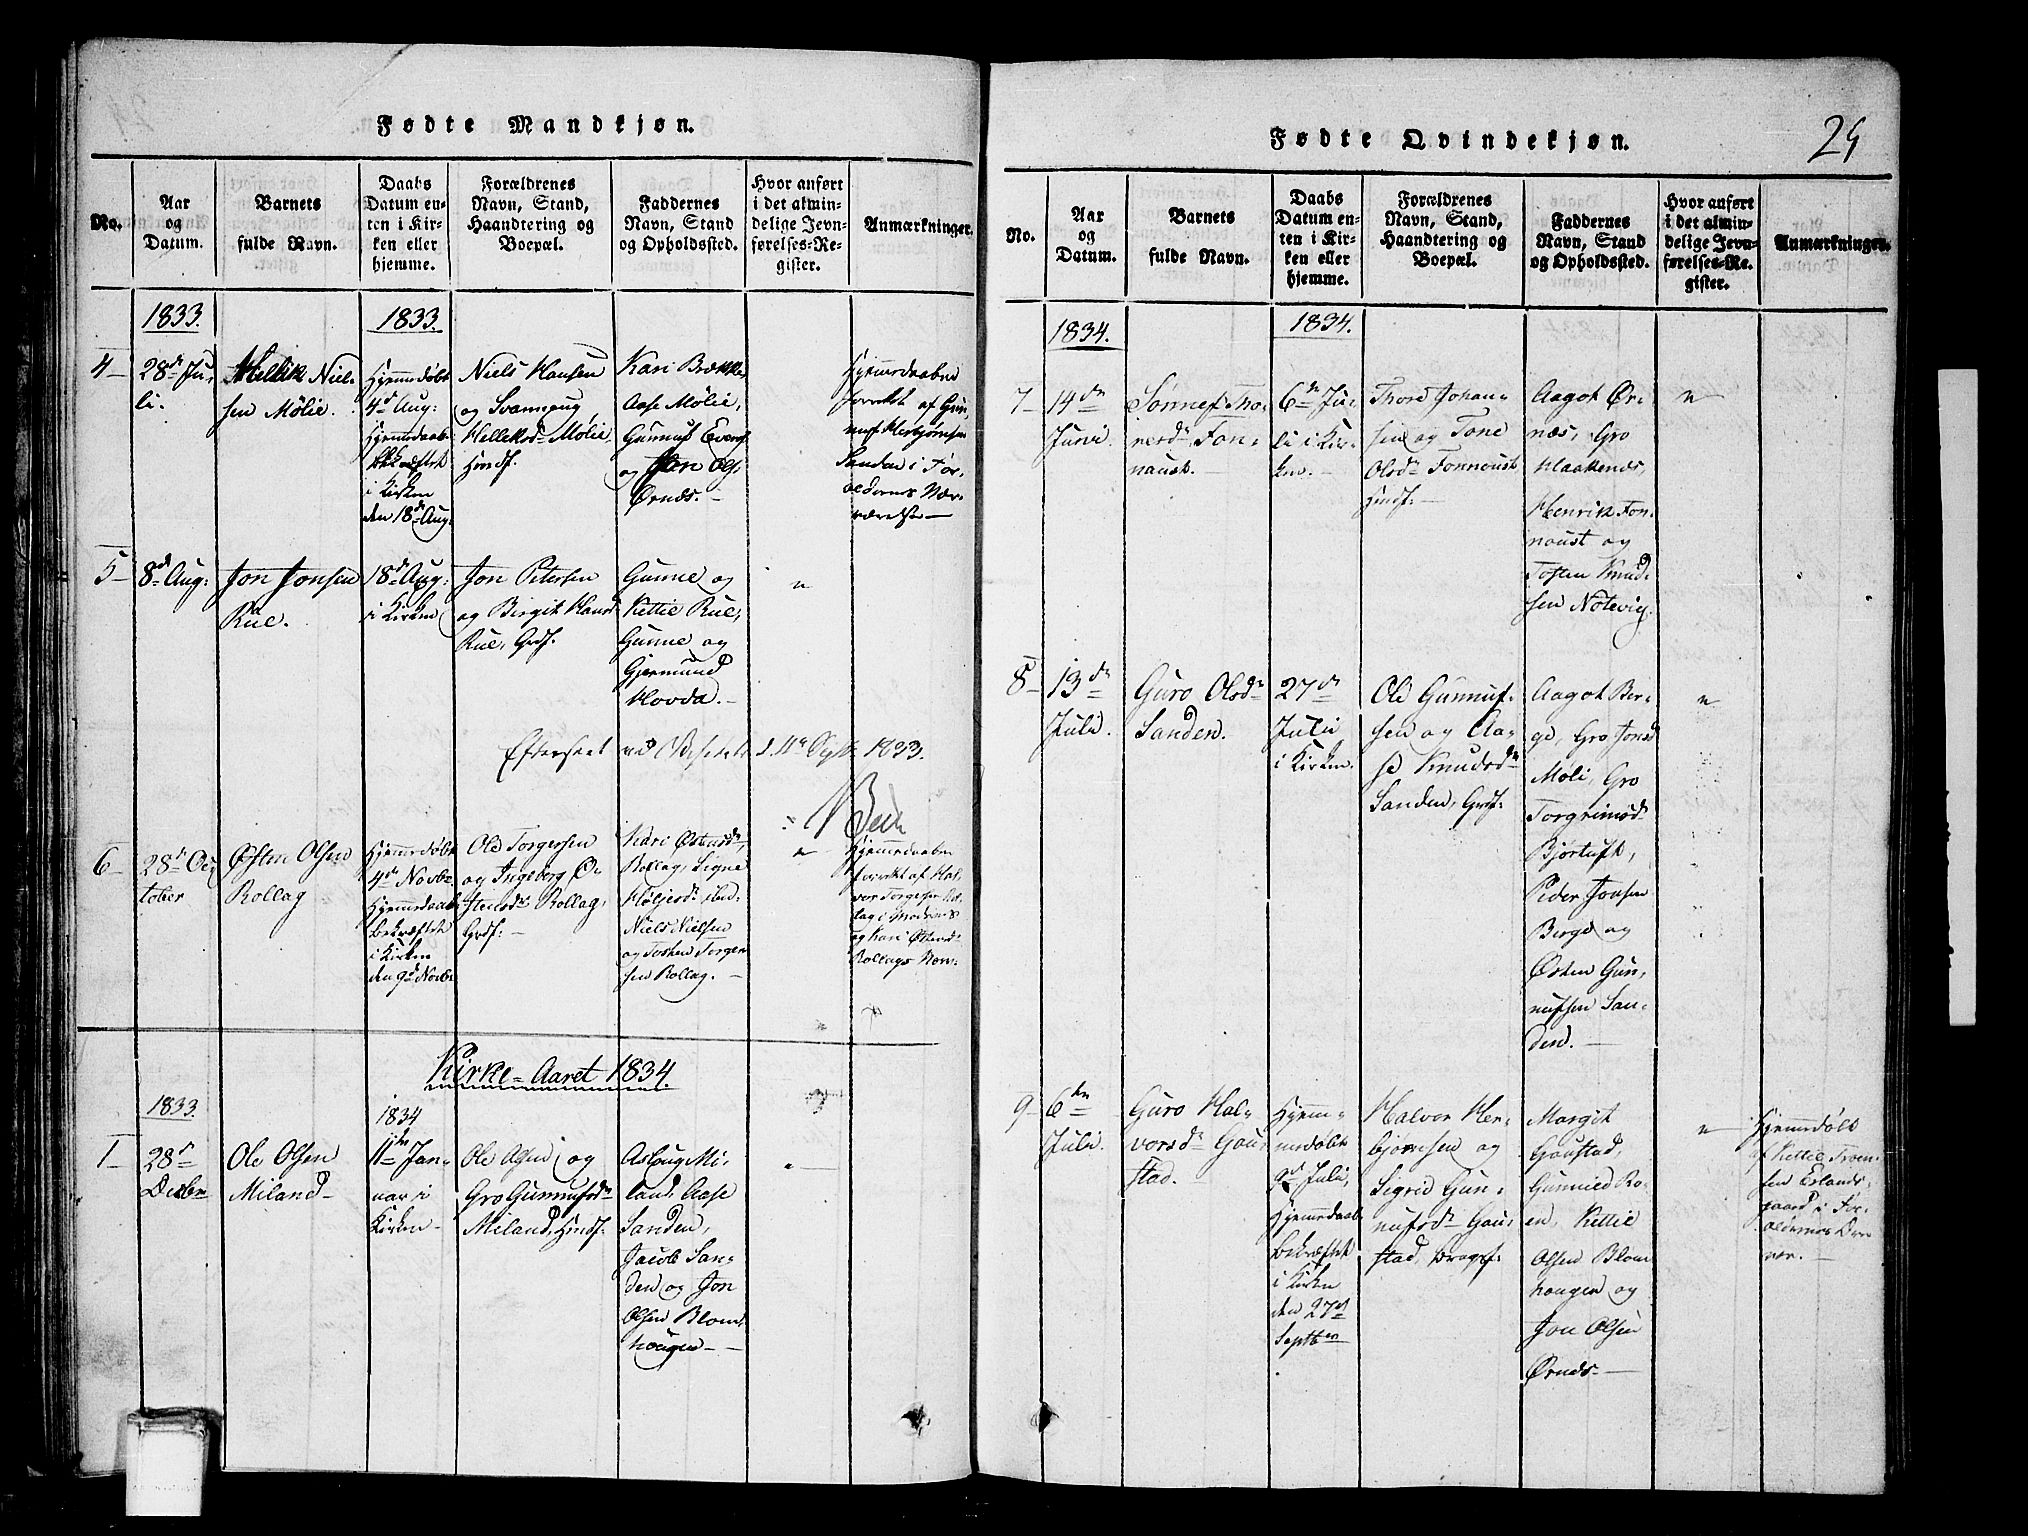 Fødte Mandkjøn.
No.
Aar
og
Datum.
Barnets
fulde Navn.
Daabs
Datum en-
ten i Kir-
ken eller
hjemme.
Forældrenes
Navn, Stand,
Haandtering og
Boepæl.
Faddernes
Navn, Stand
og Opholdssted.
Hvor anført
i det almin-
delige Jevn-
førelses-Re-
gister.
Anmærkninger.
1833.
1833.
4
28de Ju-
li.
Hellik Niel-
sen Mølie.
Hjemmedøbt
4d Aug:
Hjemmedaab
bekræftet
i Kirken
den 18de Aug:
Niels Hansen
og Svanaug
Helleksdr Mølie,
Hmdf.
Kari Brække,
Aase Mølie,
Gunnuf Evens.
og Jon Ols:
Ørnæs.
Hjemmedaaben
forrettet af Gun-
nuf Herbjørnsen
Sanden i For-
ældrenes Nær-
værelse
5
8d Aug:
Jon Jonsen
Rue.
18d Aug:
i Kirken
Jon Petersen
og Birgit Hansd
Rue, Grdf.
Gunne og
Kettie Rue,
Gunne og
Gjermund
Hovda.
Efterseet ved Besøkelse d. 11te Sept 1833.
6
28de Oc-
tober
Østen Olsen
Rollag
Hjemmedøbt
4de Novbr
Hjemmedaab
bekræftet
i Kirken
den 9d Novbr
Ole Torgersen
og Ingeborg Ø-
stensdr Rollag,
Grdf:
Kari Østensdr,
Rollag, Signe
Høljesdr ibid.
Niels Nielsen
og Tosten Torger-
sen Rollag.
Hjemmedaaben
forrettet af Hal-
vor Torgersen Rol-
lag i Moderens
og Kari Østensd
Rollags Nærv.
Kirke-Aaret 1834.
1833.
1834
1
28de
Decbr
Ole Olsen
Miland
11te Jan-
uar i
Kirken
Ole Olsen og
Gro Gunnufsdr
Miland, Hmdf.
Aslaug Mi-
land, Aase
Sanden,
Jacob San-
den og Jon
Olsen Blom-
hougen
Fødte Qvindekjøn.
No.
Aar
og
Datum.
Barnets
fulde Navn.
Daabs
Datum en-
ten i Kir-
ken eller
hjemme.
Forældrenes
Navn, Stand,
Haandtering og
Boepæl.
Faddernes
Navn, Stand
og Opholdssted.
Hvor anført
i det almin-
delige Jevn-
førelses-Re-
gister.
Anmærkninger.
1834.
1834.
7
14de
Juni
Sønnef Tho-
resdr Fon-
noust.
6te Ju-
li i Kir-
ken.
Thore Johan-
sen og Tone
Olsdr Fonnoust
Hmdf:
Aagot Ør-
næs, Gro
Haakenæs,
Henrik Fon-
noust og
Tosten Knud-
sen Notevig.
8
13de
Juli.
Guro Olsdr
Sanden.
27de
Juli
i Kirken.
Ole Gunnuf-
sen og Aa-
se Knudsdr
Sanden, Grdf:
Aagot Ber-
ge, Gro Jonsd
Møli, Gro
Torgrimsdr
Bjortuft,
Peder Jonsen
Berge og
Østen Gun-
nufsen San-
den.
9
6te
Juli.
Guro Hal-
vorsdr Gou-
stad.
Hjem-
medøbt
9d Juli,
Hjemmedaab
bekræftet
i Kirken
den 27de
Septbr
Halvor Her-
bjørnsen og
Sigrid Gun-
nufsdr Gou-
stad, Brugsf:
Margit
Goustad,
Gunnild Ro-
en, Kettie
Olsen Blom-
hougen og
Jon Olsen
Ørnæs.
Hjemmedøbt
af Kettie Troen-
sen Erlands-
gaard i For-
ældrenes Nær-
vær.